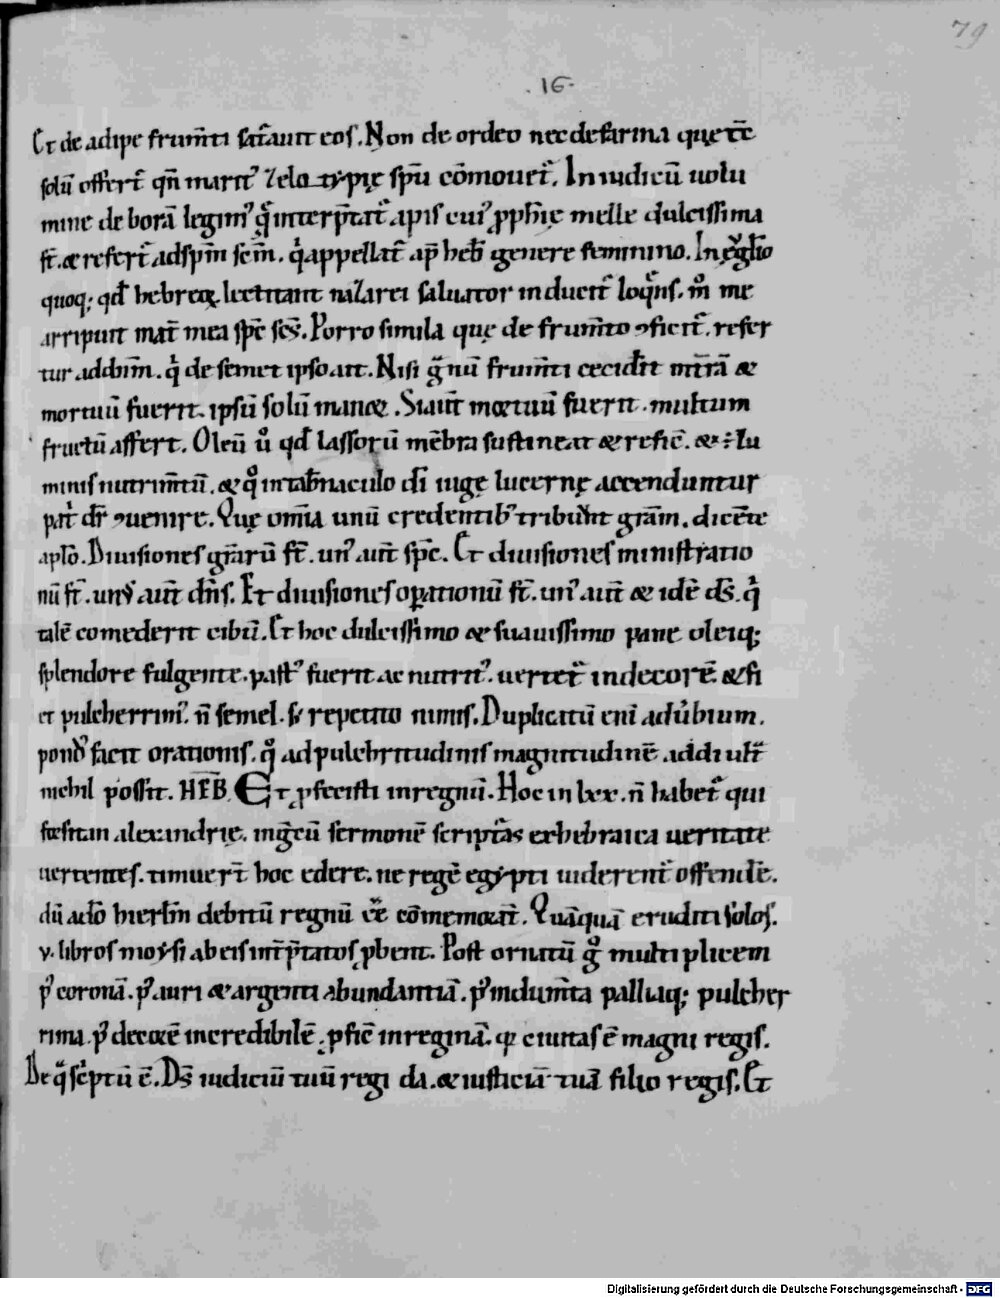 79
.16.
Et de adipe frum̄ti sat̄auit eos. Non de ordeo nec de farina quę tc̄
solū offert̄ qn̄ marit᾿ zelotypię sp̄u cōmouet᾿. In iudicū uolu
mine deborā legim᾿ q̄ interp̄tat᾿ apis cui᾿ ꝓph̄ię melle dulcissima
st̄. & refert᾿ ad sp̄m sc̄m. q appellat᾿ ap̄ heb̄ genere feminino. In euglīo
quoq; qđ hebreaꝝ lectitant nazarei saluator inducit᾿ loqns. m̊ me
arripuit mat̄ mea sp̄c sc̄s. Porro simila quę de frum̄to ꝯficit᾿. refer
tur ad dn̄m. q de semet ipso ait. Nisi gnū frum̄ti cecid̄it in t̄rā &
mortuū fuerit. ipsū solū man&. Si aut̄ mortuū fuerit. multum
fructū affert. Oleū ů qđ lassorū mēbra sustineat & refic̄. & ÷ lu
minis nutrim̄tū. & q̊ in tab̄naculo dī iuge lucernę accenduntur
pat̄ dr̄ ꝯuenire. Quę om̄ia unū credentib᾿ tribuunt gr̄am. dicēte
aplō. Diuisiones gr̄arū st̄. un᾿ aut̄ sp̄c. Et diuisiones ministratio
nū st̄. un᾿ aut̄ dn̄s. Et diuisiones oꝑationū st̄. un᾿ aut̄ & idē ds̄. q
talē comederit cibū. Et hoc dulcissimo & suauissimo pane oleiq;
splendore fulgente. past᾿ fuerit ac nutrit᾿. uertet᾿ in decorē. & fi
et pulcherrim᾿. n̄ semel. s; repetito nimis. Duplicatū enī aduerbium.
pond᾿ facit orationis. q̊ ad pulchritudinis magnitudinē addi ult᾿
nichil possit. HEB. Et ꝓfecisti in regnū. Hoc in lxx. n̄ habet᾿ qui
forsitan alexandrię. in gr̄cū sermonē scriptas ex hebraica ueritate
uertentes. timuer̄t hoc edere. ne regē egypti uiderent᾿ offende.
dū adō hierlm̄ debitū regnū eē cōmemorat̄. Quāquā eruditi solos.
v. libros moysi ab eis int̄p̄tatos ꝓbent. Post ornatū g̊ multiplicem
p᾿ coronā. p᾿ auri & argenti abundantiā. p᾿ indum̄ta palliaq; pulcher
rima. p᾿ decorē incredibilē. ꝓficē in reginā. qꝫ ciuitas ē magni regis.
De q sc̄ptū ē. Ds̄ iudiciū tuū regi da. & iusticiā tuā filio regis. Et
Digitalisierung gefördert durch die Deutsche Forschungsgemeinschaft - DFG